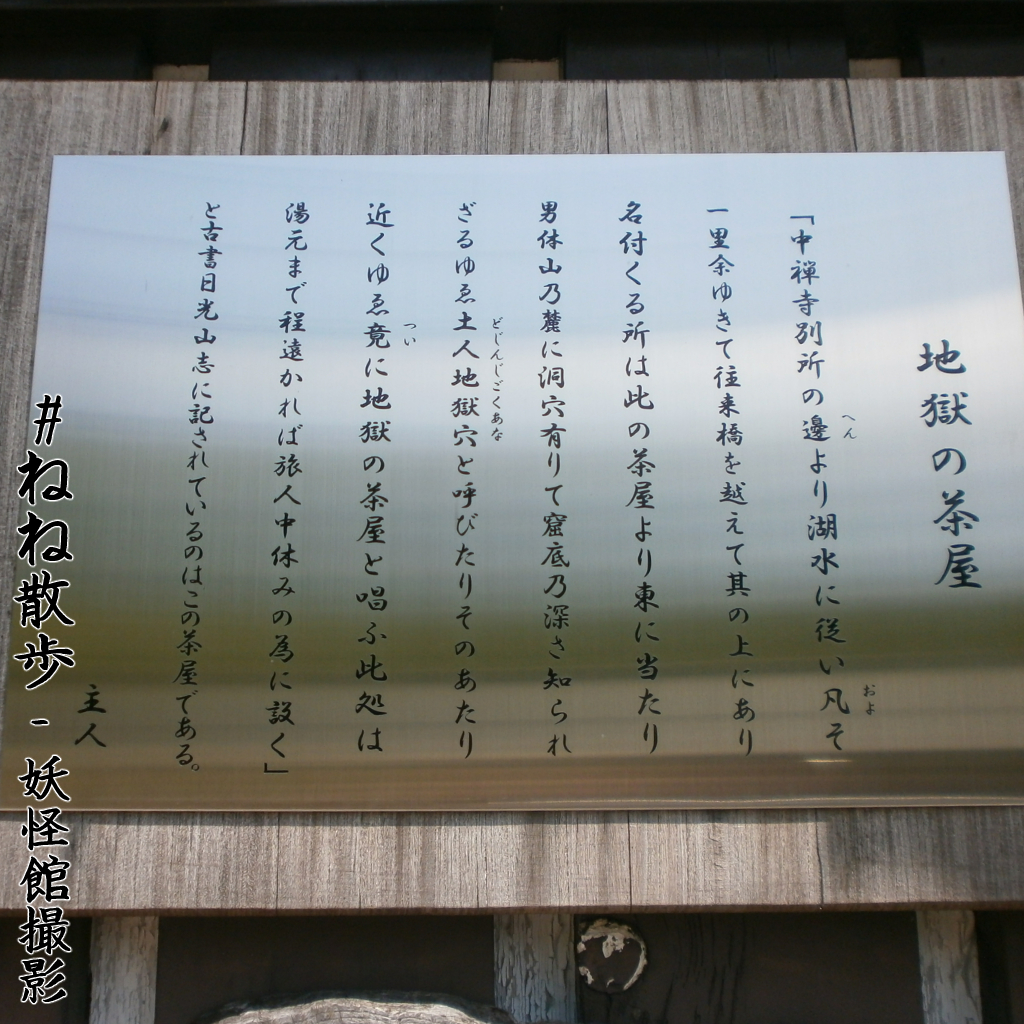 地獄の茶屋
「中禅寺別所の邊より湖水に従い凡そ
へん
およ
一里余ゆきて往来橋を越えて其の上にあり
名付くる所は此の茶屋より東に当たり
男体山乃麓に洞穴有りて窟底乃深さ知られ
ざるゆゑ土人地獄穴と呼びたりそのあたり
どじんじごくあな
近くゆゑ竟に地獄の茶屋と唱ふ此処は
つい
湯元まで程遠かれば旅人中休みの為に設く」
と古書日光山志に記されているのはこの茶屋である。
主人
#ねね散歩 - 妖怪館撮影